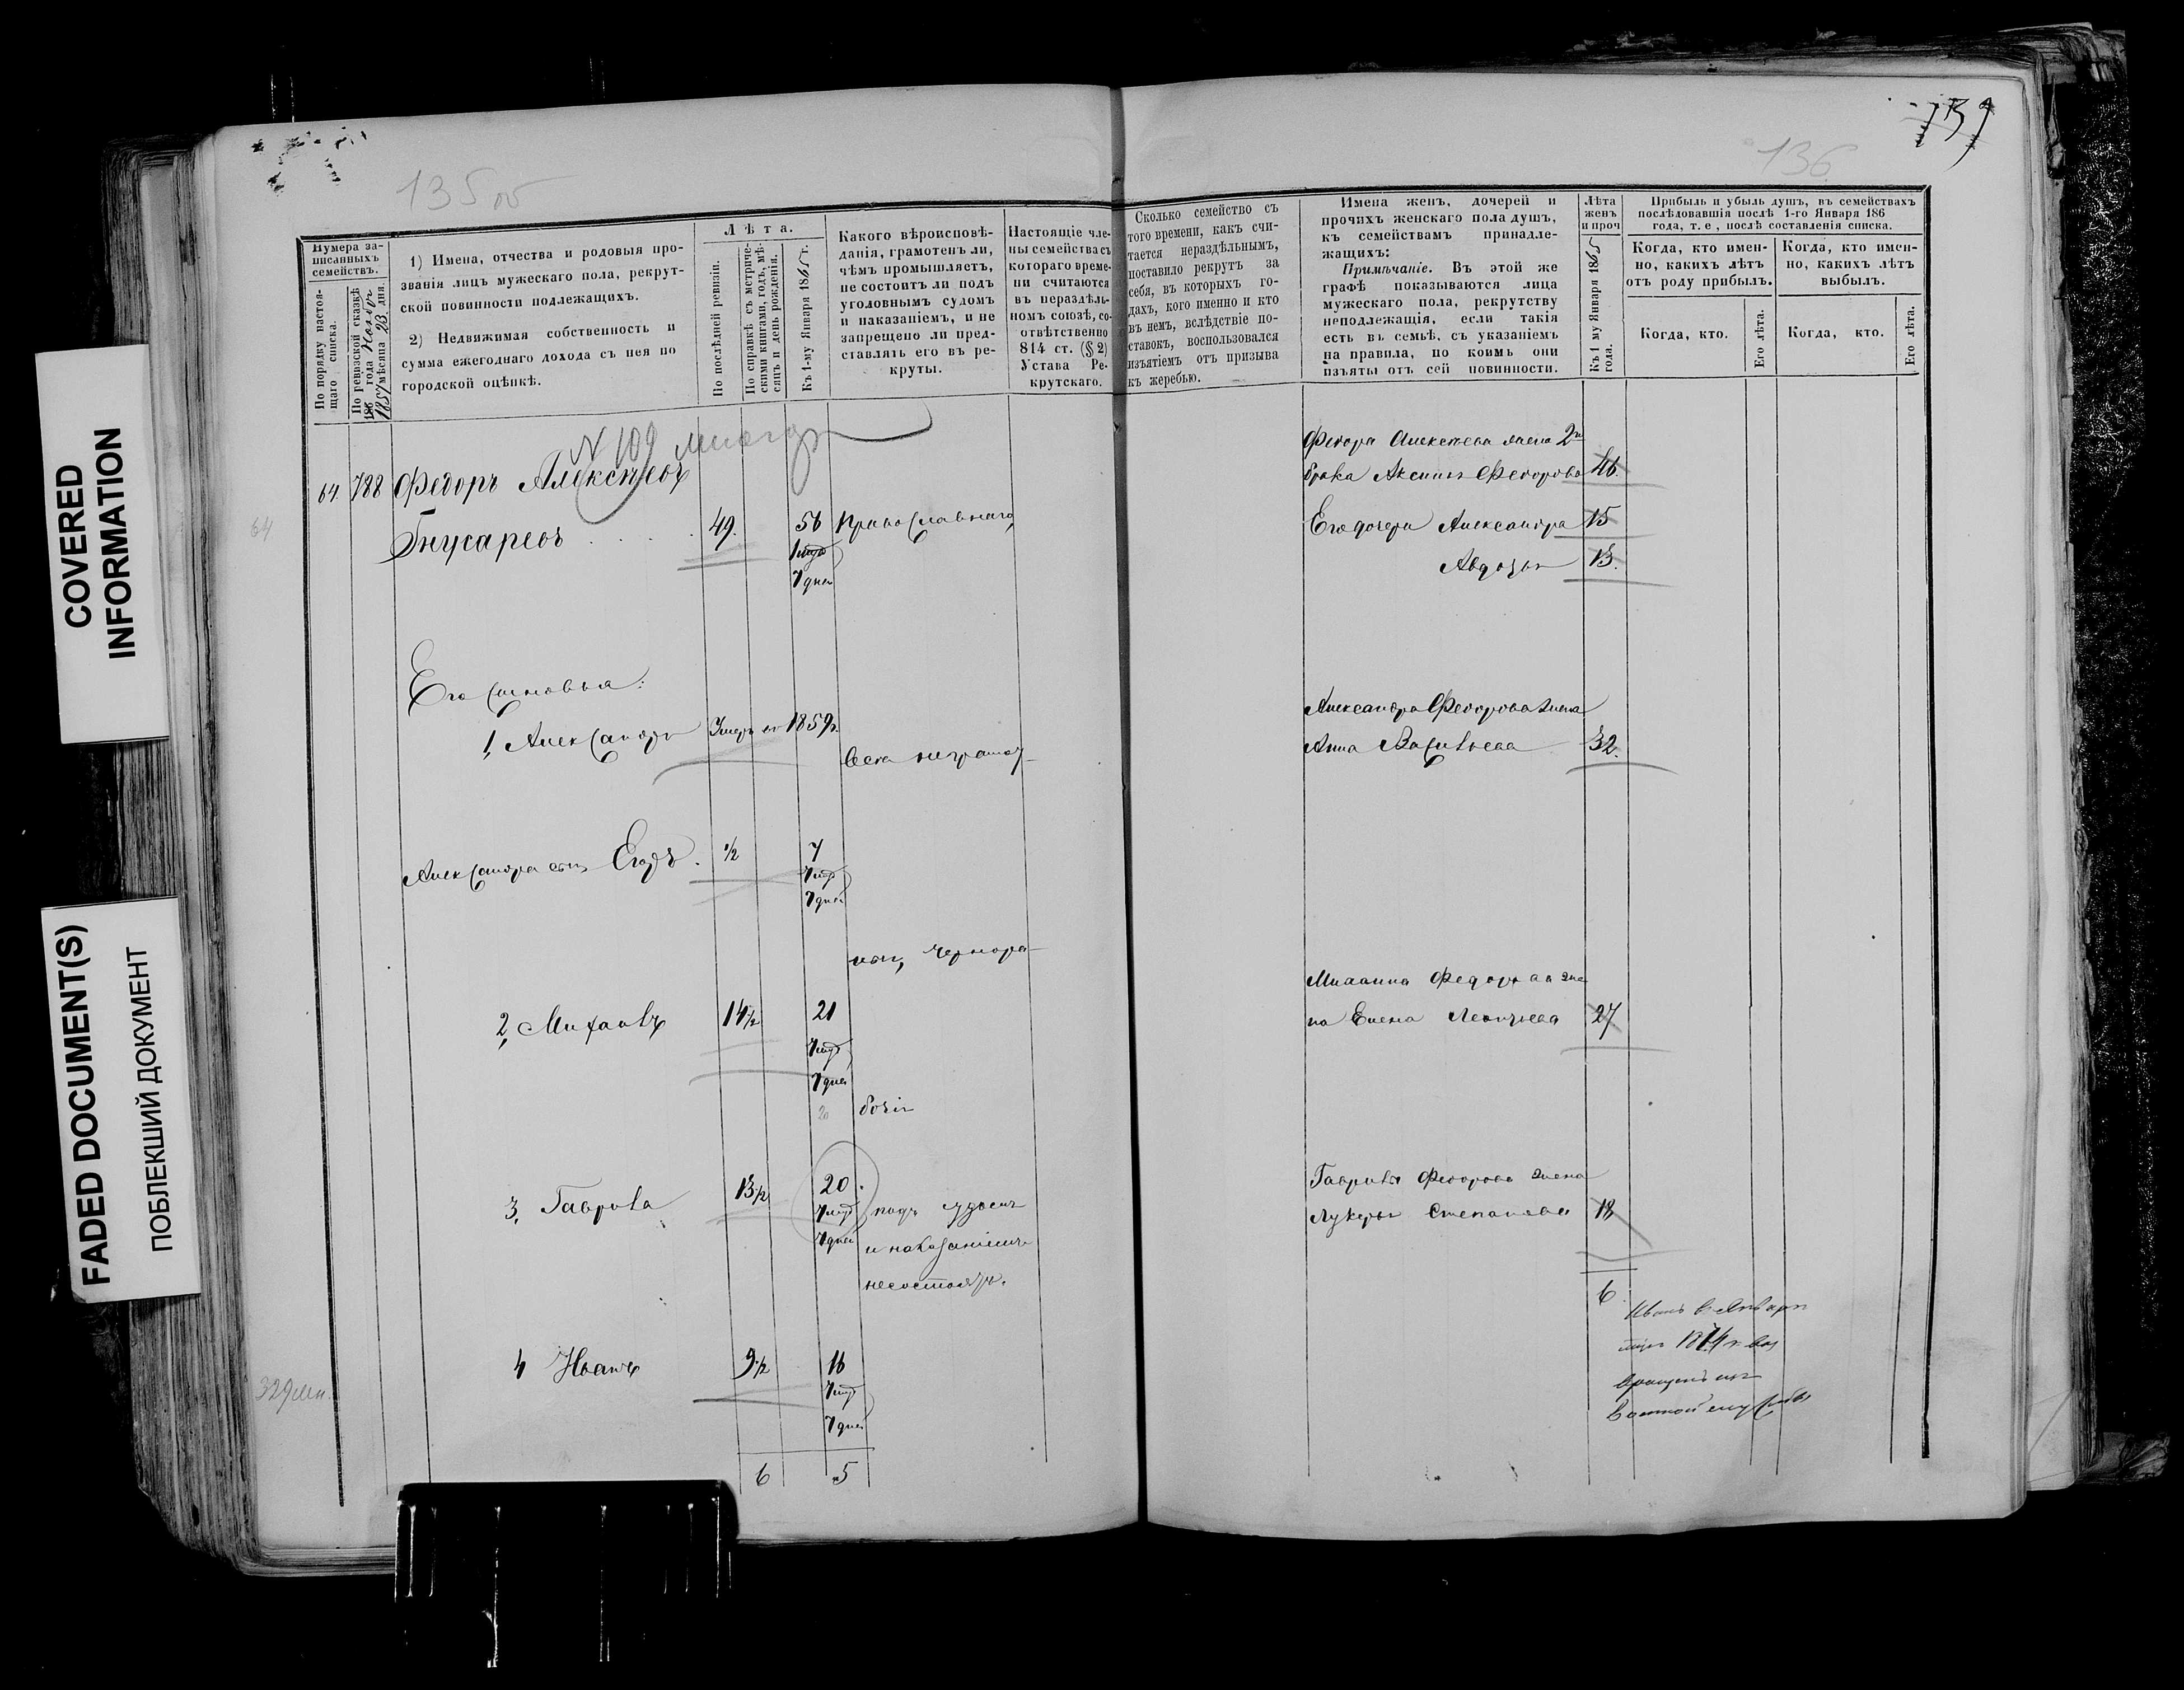 COVERED
INFORMATION
FADED DOCUMENT(S)
ПОБЛЕКШИЙ ДОКУМЕНТ
135об
Нумера записанныхъ семействъ.
По порядку настоящаго списка.
По ревизской сказкѣ 1857 года Ноябр мѣсяца 23 дня.
1) Имена, отчества и родовыя про-
званія лицъ мужескаго пола, рекрут-
ской повинности подлежащихъ.
2) Недвижимая собственность и
сумма ежегоднаго дохода съ нея по
городской оцѣнкѣ.
Лѣта.
По послѣдней ревизіи.
По справкѣ съ метриче-
скими книгами, годъ, мѣ-
сяцъ и день рожденія.
Къ 1-му Января 1865 г.
Какого вѣроисповѣ-
данія, грамотенъ ли,
чѣмъ промышляетъ,
не состоитъ ли подъ
уголовнымъ судомъ
и наказаніемъ, и не
запрещено ли пред-
ставлять его въ ре-
круты.
Настоящіе чле-
ны семейства съ
котораго време-
ни считаются
въ нераздѣль-
номъ союзѣ, со-
отвѣтственно
814 ст. (§ 2)
Устава Ре-
крутскаго.
N 109
64. 788 Федоръ Алексѣевъ
Гнусаревъ 49. 56 Православнаго
7 дней
64
Его сыновья:
1, Александръ Умеръ въ 1859г.
всѣ неграмот-
Александра сынъ Егоръ. 1/2 7
7 дней
ны, чернора-
2, Михаилъ 14 1/2 21
7 дней
20 бочіе
3, Гаврила 13 1/2 20.
7 дней
подъ судомъ
и наказаніемъ
несостоятъ.
4 Иванъ 9 1/2 16
7 дней
329
6 5
139
136
Сколько семейство съ
того времени, какъ счи-
тается нераздѣльнымъ,
поставило рекрутъ за
себя, въ которыхъ го-
дахъ, кого именно и кто
въ немъ, вслѣдствіе по-
ставокъ, воспользовался
изъятіемъ отъ призыва
къ жеребью.
Имена женъ, дочерей и
прочихъ женскаго пола душъ,
къ семействамъ принадле-
жащихъ:
Примѣчаніе. Въ этой же
графѣ показываются лица
мужескаго пола, рекрутству
неподлежащія, если такія
есть въ семьѣ, съ указаніемъ
на правила, по коимъ они
изъяты отъ сей повинности.
Лѣта
женъ
и проч
Къ 1 му Января 1865 года.
Прибыль и убыль душъ, въ семействахъ
послѣдовавшія послѣ 1-го Января 186
года, т. е, послѣ составленія списка.
Когда, кто имен-
но, какихъ лѣтъ
отъ роду прибылъ.
Когда, кто имен-
но, какихъ лѣтъ
выбылъ.
Когда, кто.
Его лѣта.
Когда, кто.
Его лѣта.
Федора Алексѣева жена 2го
брака Аксинья Федорова 46
Его дочери Александра 15
Авдотья 13.
Александра Федорова жена
Анна Васильева 32.
Михаила Федорова же
на Елена Леонтьева 27
Гаврилы Федорова жена
Лукерья Степанова 18
6
Иванъ въ Январѣ
мцѣ 1874 г. воз
вращенъ изъ
военной службы